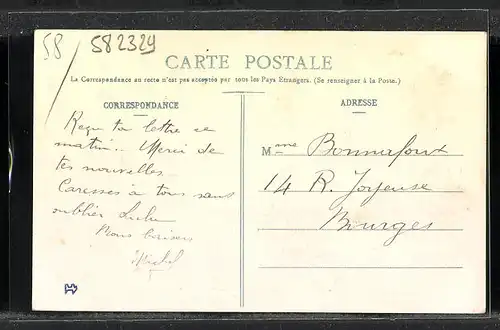 58
582329
CARTE POSTALE
La Correspondance au recto n'est pas acceptée par tous les Pays Etrangers. (Se renseigner à la Poste.)
CORRESPONDANCE
Reçu ta lettre ce
matin. Merci de
tes nouvelles.
Caresses à tous sans
oublier Lulu
Bons baisers
Michel
ADRESSE
Mme Bonnafoux
14 R. Joyeuse
Bourges